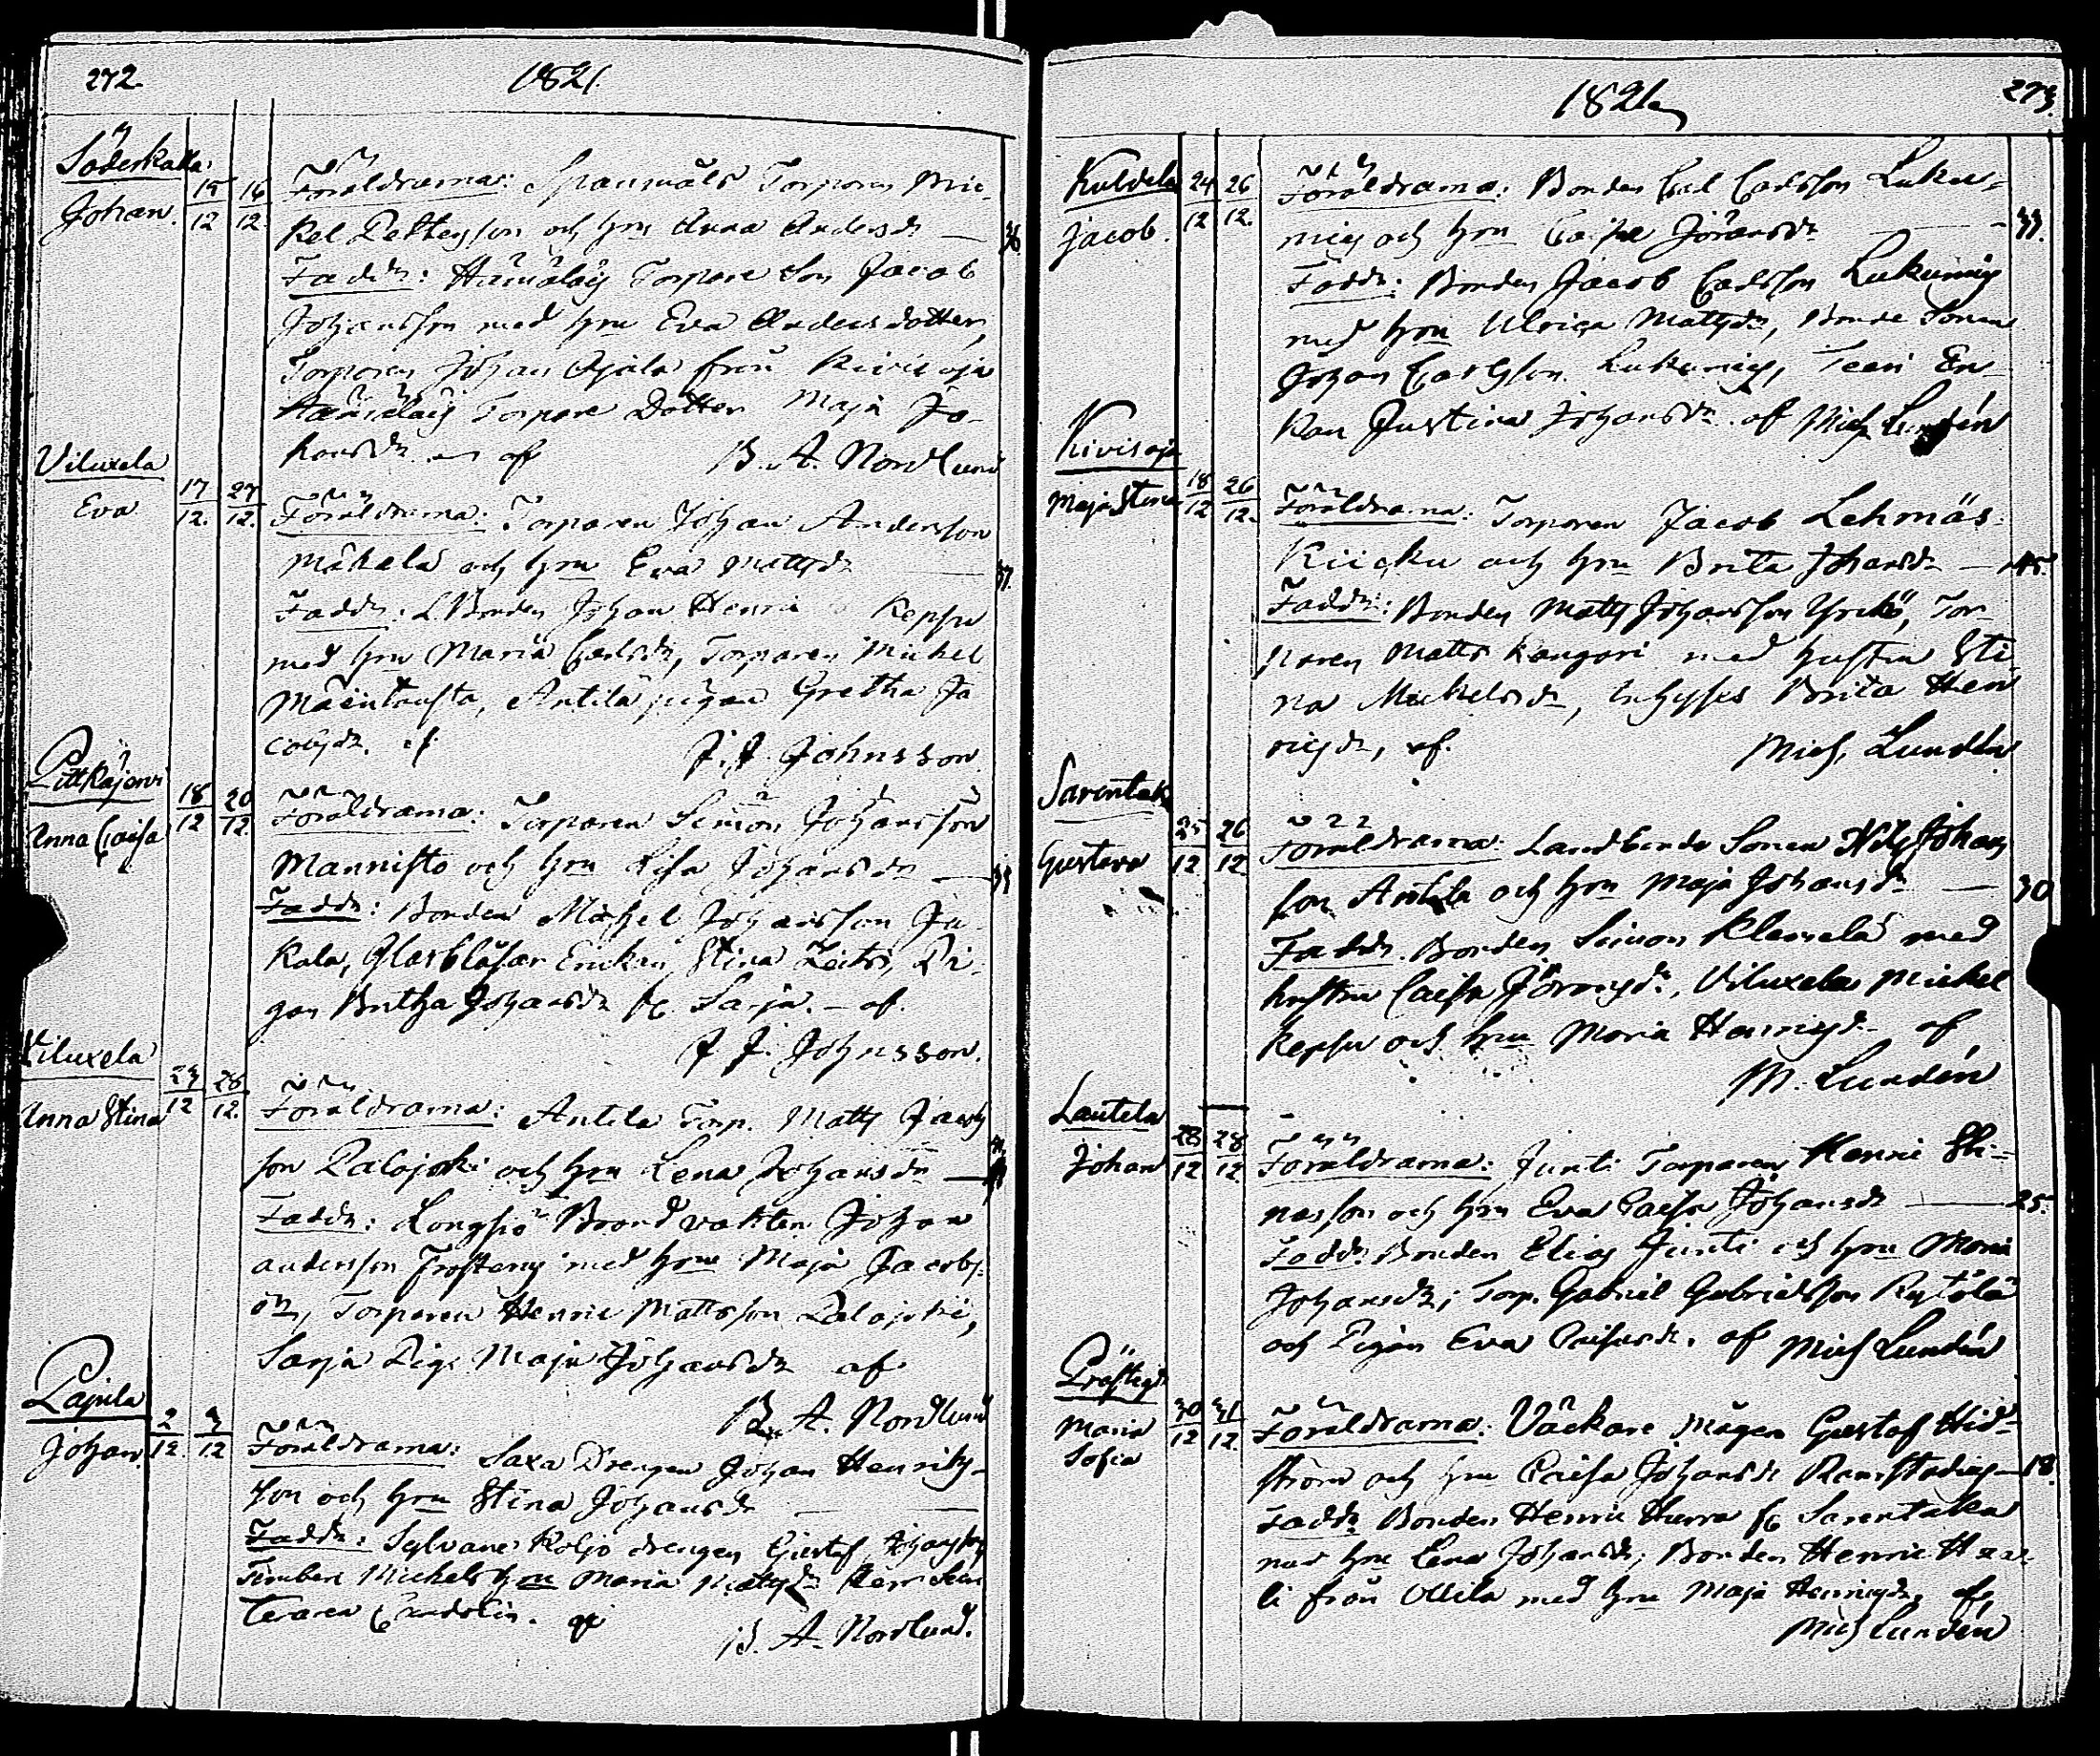 272.
1821.
Söderkulla
Johan.
15/12
16/12.
Föräldrarna: Spannuäls Torparen Mic-
kel Pettersson och hru Anna Andersdr
36
Faddr: Hämäläis Torpare Son Jacob
Johansson med hru Eva Andersdotter,
Torparen Johan Ojala från Kivisoja
Hämäläis Torpare Dotter Maja Jo-
hansdr af
B. A. Nordlund
Viluxela
Eva
17/12.
27/12.
Föräldrarna: Torparen Johan Andersson
Mäkelä och hru Eva Mattsdr
37.
Faddr: L. Bonden Johan Henric Keppu
med hru Maria Carlsdr, Torparen Mickel
Mäentausta, Antila pigan Gretha Ja
cobsdr. af
J. J. Johnsson
Pitkäjervi
Anna Caisa
18/12
20/12
Föräldrarna: Torparen Simon Johansson
Mannisto och hru Lisa Johansdr
Faddr: Bonden Michel Johansson Ja
kala, Glasblåsar Enkan Stina Zeitz, Pi-
gan Britha Johansdr fr. Sarja. – af.
J. J. Johnsson.
Viluxela
Anna Stina
23/12
28/12.
Föräldrarna: Antila Torp. Matts Jacobs
son Palojoki och hru Lena Johansdr
Faddr: Longsjö Brandvakten Johan
andersson Frosterus med hru Maja Jacobs-
dr, Torparen Henric Mattsson Palojoki,
Sarja Pig. Maja Johansdr af
B. A. Nordlund
Pajula
Johan.
2/12.
3/12
Föräldrarna: Saxa Drengen Johan Henrics-
son och hru Stina Johansdr
Faddr: Sylvane Koljo drengen Gustaf Johansson
Timberi Mickels hru Maria Mattsdr Herr Sec
teraren Sundelin. af
B. A. Nordlund.
1821
273.
Kuldela
Jacob.
24/12
26/12.
Föräldrarna: Bonden Carl Carlsson Luku-
mies och hru Caisa Jöransdr
33.
Faddr: Bonden Jacob Carlsson Lukumies
med hru Ulrica Mattsdr, Bonde Sonen
Johan Carlsson Lukumies, Teeri En-
kan Justina Johansdr. af Mich Lundén
Kivisoja
Maja Stina
18/12
26/12.
Föräldrarna: Torparen Jacob Lehmäs
Kiicku och hru Brita Johansdr
45.
Faddr: Bonden Matts Johansson Yrckö, Tor-
paren Matts Kangari med hustru Sti-
na Mickelsdr, Inhyses Brita Hen
ricsdr, af.
Mich, Lundén
Sarentaka
Gustava
25/12
26/12
Föräldrarna: Landbonde Sonen Nils Johans
son Antila och hru Maja Johansdr
30
Faddr. Bonden Simon Klemelä med
hustru Caisa Jöransdr, Viluxela Mickel
Keppu och hru Maria Henricsdr af
M. Lundén
Lautela
Johan
28/12
28/12
Föräldrarna: Junti Torparen Henric Sti-
nasson och hru Eva Caisa Johansdr
25.
Faddr. Bonden Elias Junti och hru Maria
Johansdr; Torp. Gabriel Gabrielsson Rytölä
och Pigan Eva Caisasdr. af Mich Lundén
Prästgd
Maria
Sofia
30/12
31/12.
Föräldrarna: Väckare Mågen Gustaf Hid-
ström och hru Caisa Johansdr Ramstadius
18.
Faddr Bonden Henric Herra fr. Sarentaka
med hru Lena Johansdr, Bonden Henric Han
li från Ollila med hru Maja Henricsdr, af,
Mich Lundén